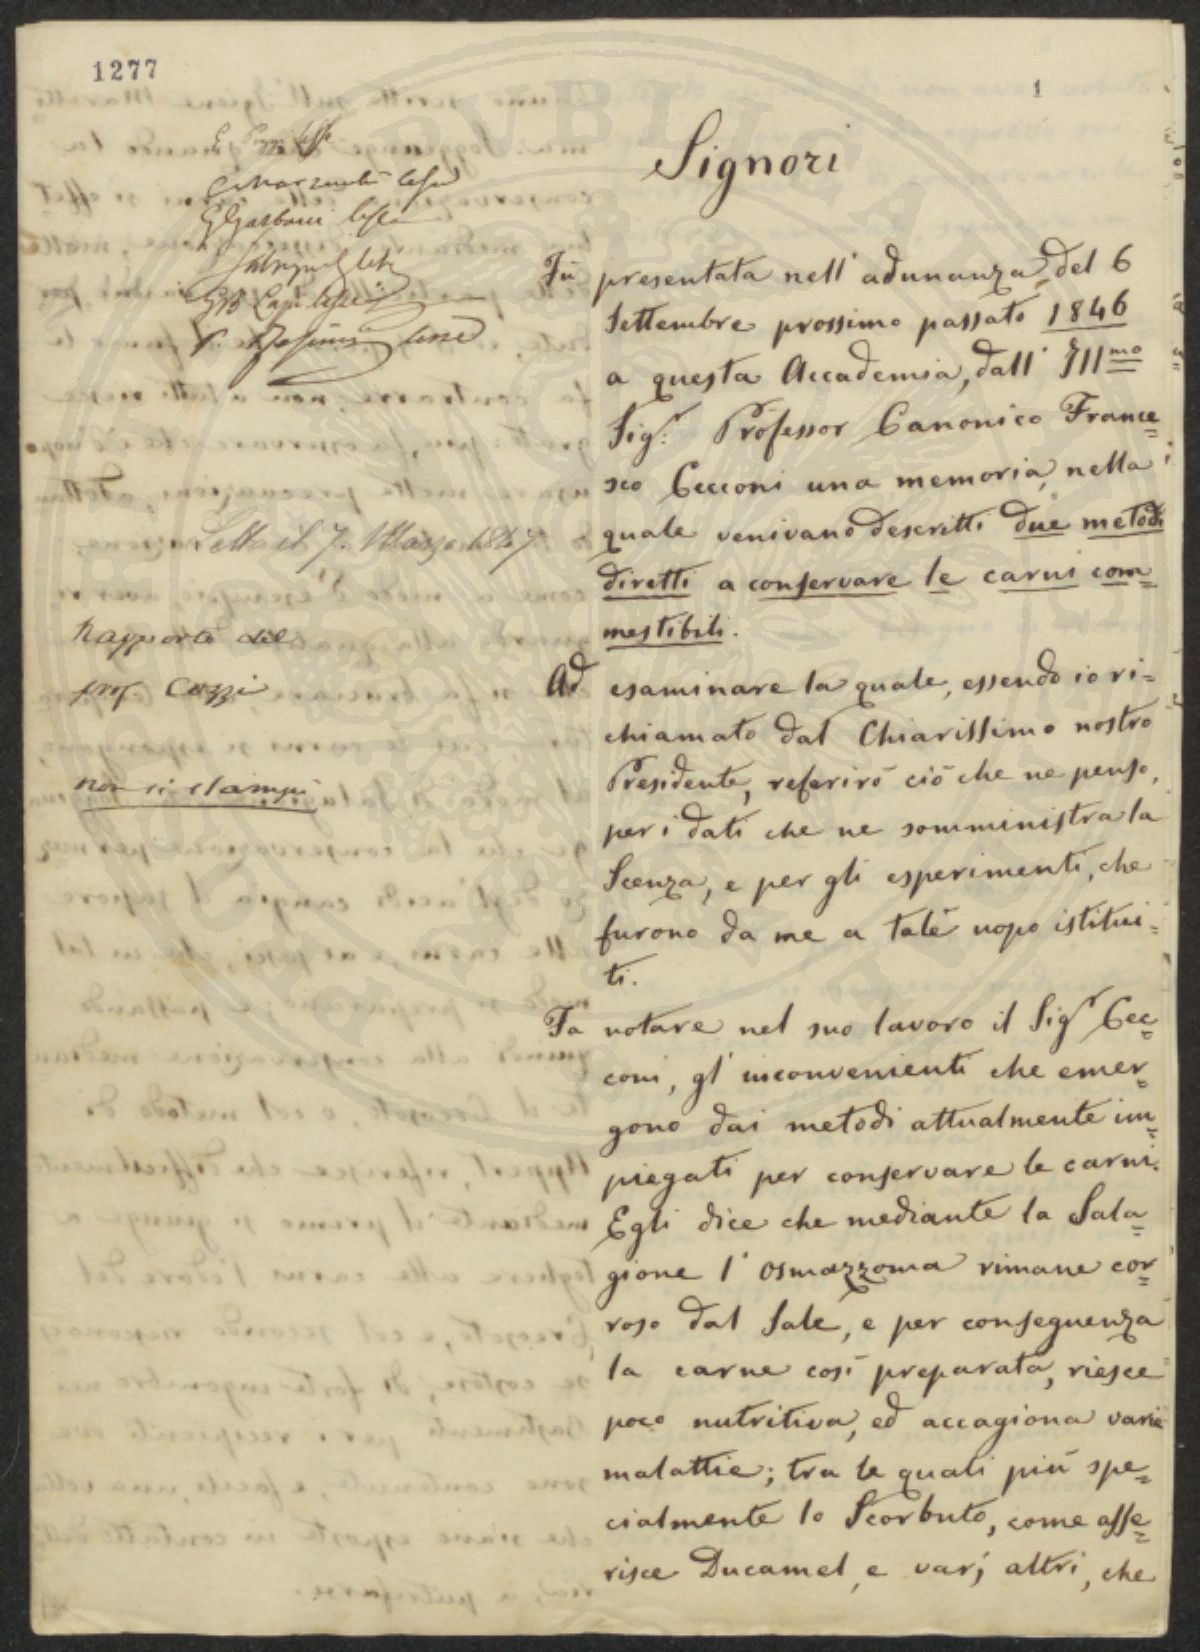 1277
1
Signori
lesse
Letto il 7. Marzo 1847
Rapporto del
prof Cozzi
non si stampi
Fù presentata nell' adunanza del 6
Settembre prossimo passato 1846
a questa Accademia, dall' Ill.mo
Sig.r Professor Canonico France=
sco Cecconi una memoria, nella
quale venivano descritti due metodi
diretti a conservare le carni com=
mestibili.
Ad esaminare la quale, essendo io ri=
chiamato dal Chiarissimo nostro
Presidente, referirò ciò che ne penso,
per i dati che ne somministra la
Scenza, e per gli esperimenti, che
furono da me a tale uopo istitui=
ti.
Fa notare nel suo lavoro il Sig.r Cec=
coni, gl' inconvenienti che emer=
gono dai metodi attualmente im=
piegati per conservare le carni.
Egli dice che mediante la Sala=
gione l' osmazzoma rimane cor=
roso dal Sale, e per conseguenza
la carne così preparata, riesce
poco nutritiva, ed accagiona varie
malattie; tra le quali più spe=
cialmente lo Scorbuto, come asse=
risce Ducamel, e varj altri, che